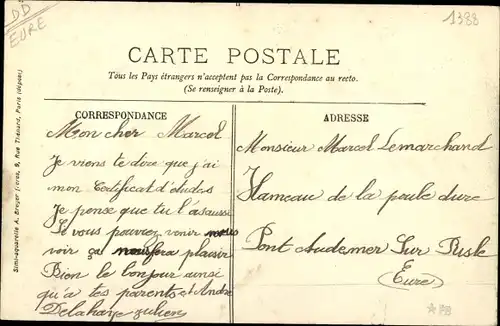 DD
EURE
1388
CARTE POSTALE
Tous les Pays étrangers n'acceptent pas la Correspondance au recto.
(Se renseigner à la Poste).
Simi-aquarelle A. Breger frères, 9, Rue Thénard, Paris (déposé)
CORRESPONDANCE
Mon cher Marcel
Je viens te dire que j'ai
mon Certificat d'études
Je pense que tu l'as aussi
Si vous pouvez venir nous
voir ça nous fera plaisir
Bien le bonjour ainsi
qu'à tes parents et André
Delahaye Julien
ADRESSE
Monsieur Marcel Lemarchand
Hameau de la poule dure
Pont Audemer Sur Risle
(Eure)